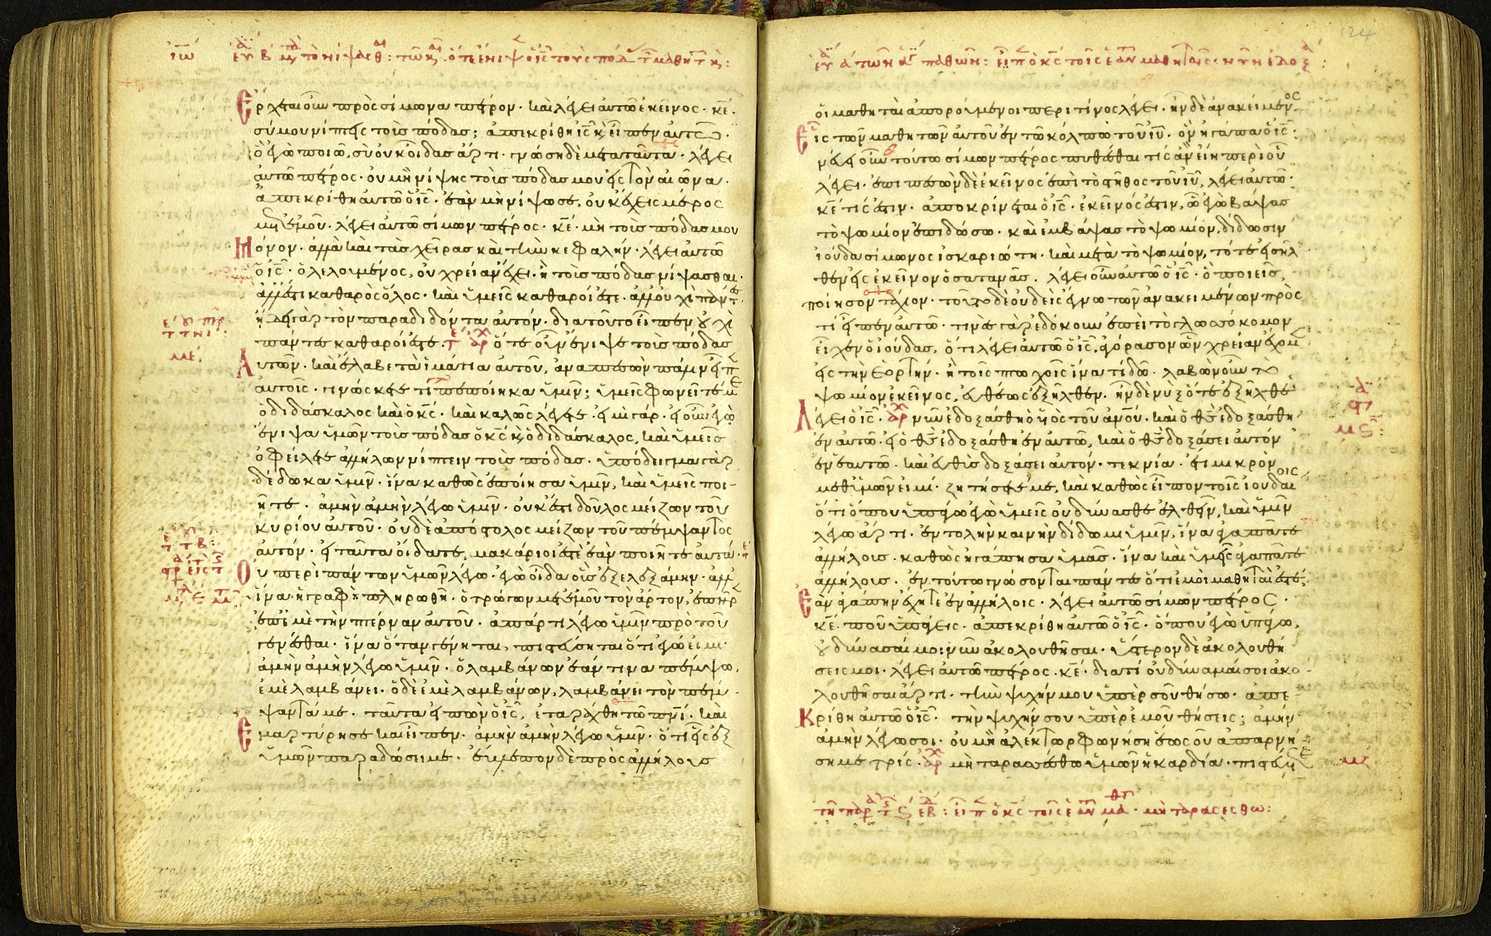 ἰω̅
Ἔρχεται οὖν πρὸς σίμωνα πέτρον· καὶ λέγει αὐτῶ ἐκεῖνος· κε̅·
σύ μου νίπτεις τοὺς πόδας; ἀπεκρίθη ις̅ κ εἶπεν αὐτῶ·
ὃ ἐγὼ ποιῶ, σὺ οὐκ οἶδας ἄρτι· γνώση δὲ μετὰ ταῦτα· λέγει
αὐτῶ πέτρος· οὐ μὴ νίψης τοὺς πόδας μου εἰς τὸν αἰῶνα·
ἀπεκρίθη αὐτῶ ὁ ις̅· ἐὰν μὴ νίψω σε, οὐκ ἔχεις μέρος
μετ' ἐμοῦ· λέγει αὐτῶ σίμων πέτρος· κε̅· μὴ τοὺς πόδας μου
Μόνον· ἀλλὰ καὶ τὰς χεῖρας καὶ τὴν κεφαλήν· λέγει αὐτῶ
ὁ ις̅· ὁ λελουμένος, οὐ χρείαν ἔχει· ἢ τοὺς πόδας νίψασθαι·
ἀλλ' ἔστι καθαρὸς ὅλος· καὶ ὑμεῖς καθαροί ἐστε· ἀλλ' οὐχὶ πάντ
ἤδει γὰρ τὸν παραδιδόντα αὐτόν· διατοῦτο εἶπεν οὐχὶ
πάντες καθαροί ἐστε· ὅτε οὖν ἔνιψε τοὺς πόδας
Αὐτῶν· καὶ ἔλαβε τὰ ἱμάτια αὐτοῦ, ἀναπεσὼν πάλιν εἶπ
αὐτοῖς· γινώσκετε τί πεποίηκα ὑμῖν; ὑμεῖς φωνεῖτέ με
ὁ διδάσκαλος καὶ ὁ κς̅· καὶ καλῶς λέγετε· εἰμὶ γάρ· εἰ οὖν ἐγὼ
ἔνιψα ὑμῶν τοὺς πόδας ὁ κς̅ κ ὁ διδάσκαλος, καὶ ὑμεῖς
ὀφείλετε ἀλλήλων νίπτειν τοὺς πόδας· ὑπόδειγμα γὰρ
δέδωκα ὑμῖν· ἵνα καθὼς ἐποίησα ὑμῖν, καὶ ὑμεῖς ποι-
ῆτε· ἀμὴν ἀμὴν λέγω ὑμῖν· οὐκ ἔστι δοῦλος μείζων τοῦ
κυρίου αὐτοῦ· οὐδὲ ἀπόστολος μείζων τοῦ πέμψαντος
αὐτόν· εἰ ταῦτα οἴδατε, μακάριοί ἐστε ἐὰν ποιῆτε αὐτά·
Οὐ περὶ πάντων ὑμῶν λέγω· ἐγὼ οἶδα οὓς ἐξελεξάμην· ἀλλ'
ἵνα ἡ γραφὴ πληρωθῆ· ὁ τρώγων μετ' ἐμοῦ τὸν ἄρτον, ἐπῆρ
ἐπ' ἐμὲ τὴν πτέρναν αὐτοῦ· ἀπάρτι λέγω ὑμῖν πρὸ τοῦ
γενέσθαι· ἵνα ὅταν γένηται, πιστεύσηται ὅτι ἐγώ εἰμι·
ἀμὴν ἀμὴν λέγω ὑμῖν· ὁ λαμβάνων ἐάν τινα πέμψω,
ἐμὲ λαμβάνει· ὁ δὲ ἐμὲ λαμβάνων, λαμβάνει τὸν πέμ-
ψαντά με· ταῦτα εἰπὼν ὁ ις̅, ἐταράχθη τῶ πνι̅· καὶ
Ἐμαρτύρησε καὶ εἶπεν· ἀμὴν ἀμὴν λέγω ὑμῖν· ὅτι εἷς ἐξ
ὑμῶν παραδώσει με· ἔβλεπον δὲ πρὸς ἀλλήλους
οἱ μαθηταὶ ἀπορούμενοι περὶ τίνος λέγει· ἦν δὲ ἀνακείμενος
Εἷς τῶν μαθητῶν αὐτοῦ ἐν τῶ κόλπω τοῦ ιυ̅· ὃν ἠγάπα ὁ ις̅·
νεύει οὖν τούτω σίμων πέτρος πυθέσθαι τίς ἂν εἴη περὶ οὗ
λέγει· ἐπιπεσὼν δὲ ἐκεῖνος ἐπὶ τὸ στῆθος τοῦ ιυ̅, λέγει αὐτῶ·
κε̅ τίς ἐστιν· ἀποκρίνεται ὁ ις̅· ἐκεῖνός ἐστιν, ὧ ἐγὼ βάψας
τὸ ψωμίον ἐπιδώσω· καὶ ἐμβάψας τὸ ψωμίον, δίδωσιν
ἰούδα σίμωνος ἰσκαριώτη· καὶ μετὰ τὸ ψωμίον, τότε εἰσῆλ
θεν εἰς ἐκεῖνον ὁ σατανᾶς· λέγει οὖν αὐτῶ ὁ ις̅· ὃ ποιεῖς,
ποίησον τάχιον· τοῦτο δὲ οὐδεὶς ἔγνω τῶν ἀνακειμένων πρὸς
τί εἶπεν αὐτῶ· τινὲς γὰρ ἐδόκουν ἐπεὶ τὸ γλωσσόκομον
εἶχεν ὁ ἰούδας, ὅτι λέγει αὐτῶ ὁ ις̅, ἀγόρασον ὧν χρείαν ἔχομ
εἰς τὴν ἑορτήν· ἢ τοῖς πτωχοῖς ἵνα τι δῶ· λαβὼν οὖν τὸ
ψωμίον ἐκεῖνος, εὐθέως ἐξῆλθεν· ἦν δὲ νὺξ ὅτε ἐξῆλθε
Λέγει ὁ ις̅· νῦν ἐδοξάσθη ὁ υἱὸς τοῦ ανου̅· καὶ ὁ θς̅ ἐδοξάσθη
ἐν αὐτῶ· εἰ ὁ θς̅ ἐδοξάσθη ἐν αὐτῶ, καὶ ὁ θς̅ δοξάσει αὐτὸν
ἐν ἑαυτῶ· καὶ εὐθὺς δοξάσει αὐτόν· τεκνία· ἔτι μικρὸν
μεθ' ὑμῶν εἰμί· ζητήσετέ με, καὶ καθὼς εἶπον τοῖς ἰουδαίοις
ὅτι ὅπου ὑπάγω ἐγὼ ὑμεῖς οὐ δύνασθε ἐλθεῖν, καὶ ὑμῖν
λέγω ἄρτι· ἐντολὴν καινὴν δίδωμι ὑμῖν, ἵνα ἀγαπᾶτε
ἀλλήλους· καθὼς ἠγάπησα ὑμᾶς· ἵνα καὶ ὑμεῖς ἀγαπᾶτε
ἀλλήλους· ἐν τούτω γνώσονται πάντες ὅτι ἐμοὶ μαθηταί ἐστέ·
Ἐὰν ἀγάπην ἔχητε ἐν ἀλλήλοις· λέγει αὐτῶ σίμων πέτρος·
κε̅· ποῦ ὑπάγεις· ἀπεκρίθη αὐτῶ ὁ ις̅· ὅπου ἐγὼ ὑπάγω,
οὐ δύνασαί μοι νῦν ἀκολουθῆσαι· ὕστερον δὲ ἀκολουθή
σεις μοι· λέγει αὐτῶ πέτρος· κε̅· διατί οὐ δύναμαί σοι ἀκο-
λουθῆσαι ἄρτι· τὴν ψυχήν μου ὑπὲρ σοῦ θήσω· ἀπε
Κρίθη αὐτῶ ὁ ις̅· τὴν ψυχήν σου ὑπὲρ ἐμοῦ θήσεις; ἀμὴν
ἀμὴν λέγω σοι· οὐ μὴ ἀλέκτωρ φωνήση ἕως οὗ ἀπαρνή
ση με τρίς· μὴ ταρασσέσθω ὑμῶν ἡ καρδία· πιστεύε